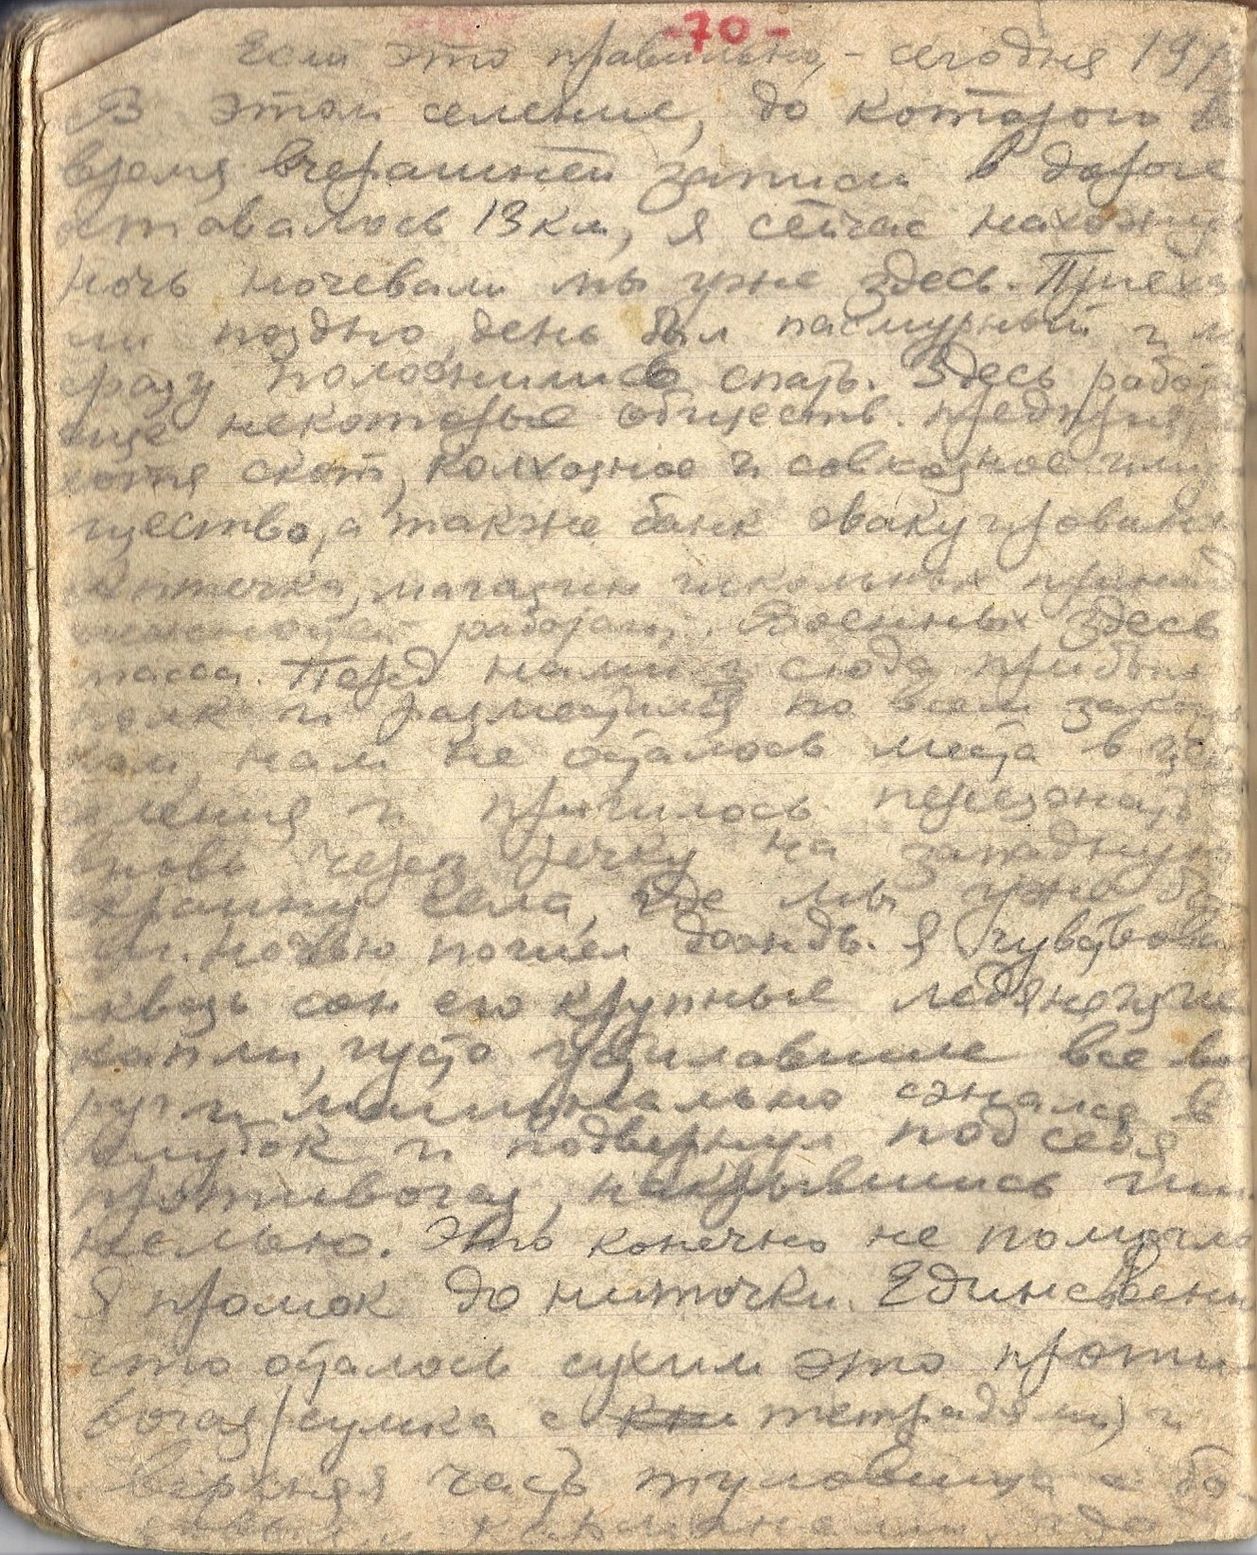 -70-
Если это правильно, - сегодня 19
В этом селение, до которого
время вчерашней записи в дороге
оставалось 13 км, я сейчас нахожу
ночь ночевали мы уже здесь. Приеха
ли поздно, день был пасмурный и
сразу положились спать. Здесь работ
еще некоторые обществ. предприя
скот, колхозное и совхозное иму
щество, а также банк эвакуирован
Аптечка, магазин школьных принад
лежностей работают. Военных здесь
масса. Перед нами и сюда прибыл
полк и разместился по всем
нам не осталось места в
и пришлось переезжать
вновь через речку на западную
окраину села, где мы уже
Ночью пошел дождь. Я чувствов
сквозь сон его крупные
капли, густо устилавшие все во
руг и машинально сжался в
клубок и подвернул под себя
противогаз, накрывшись ши
нелью. Это конечно не помогло
Я промок до ниточки. Единственн
что осталось сухим это проти
вогаз (сумка с тетрадями) и
верхняя часть туловища с бо
ковыми карманами, где